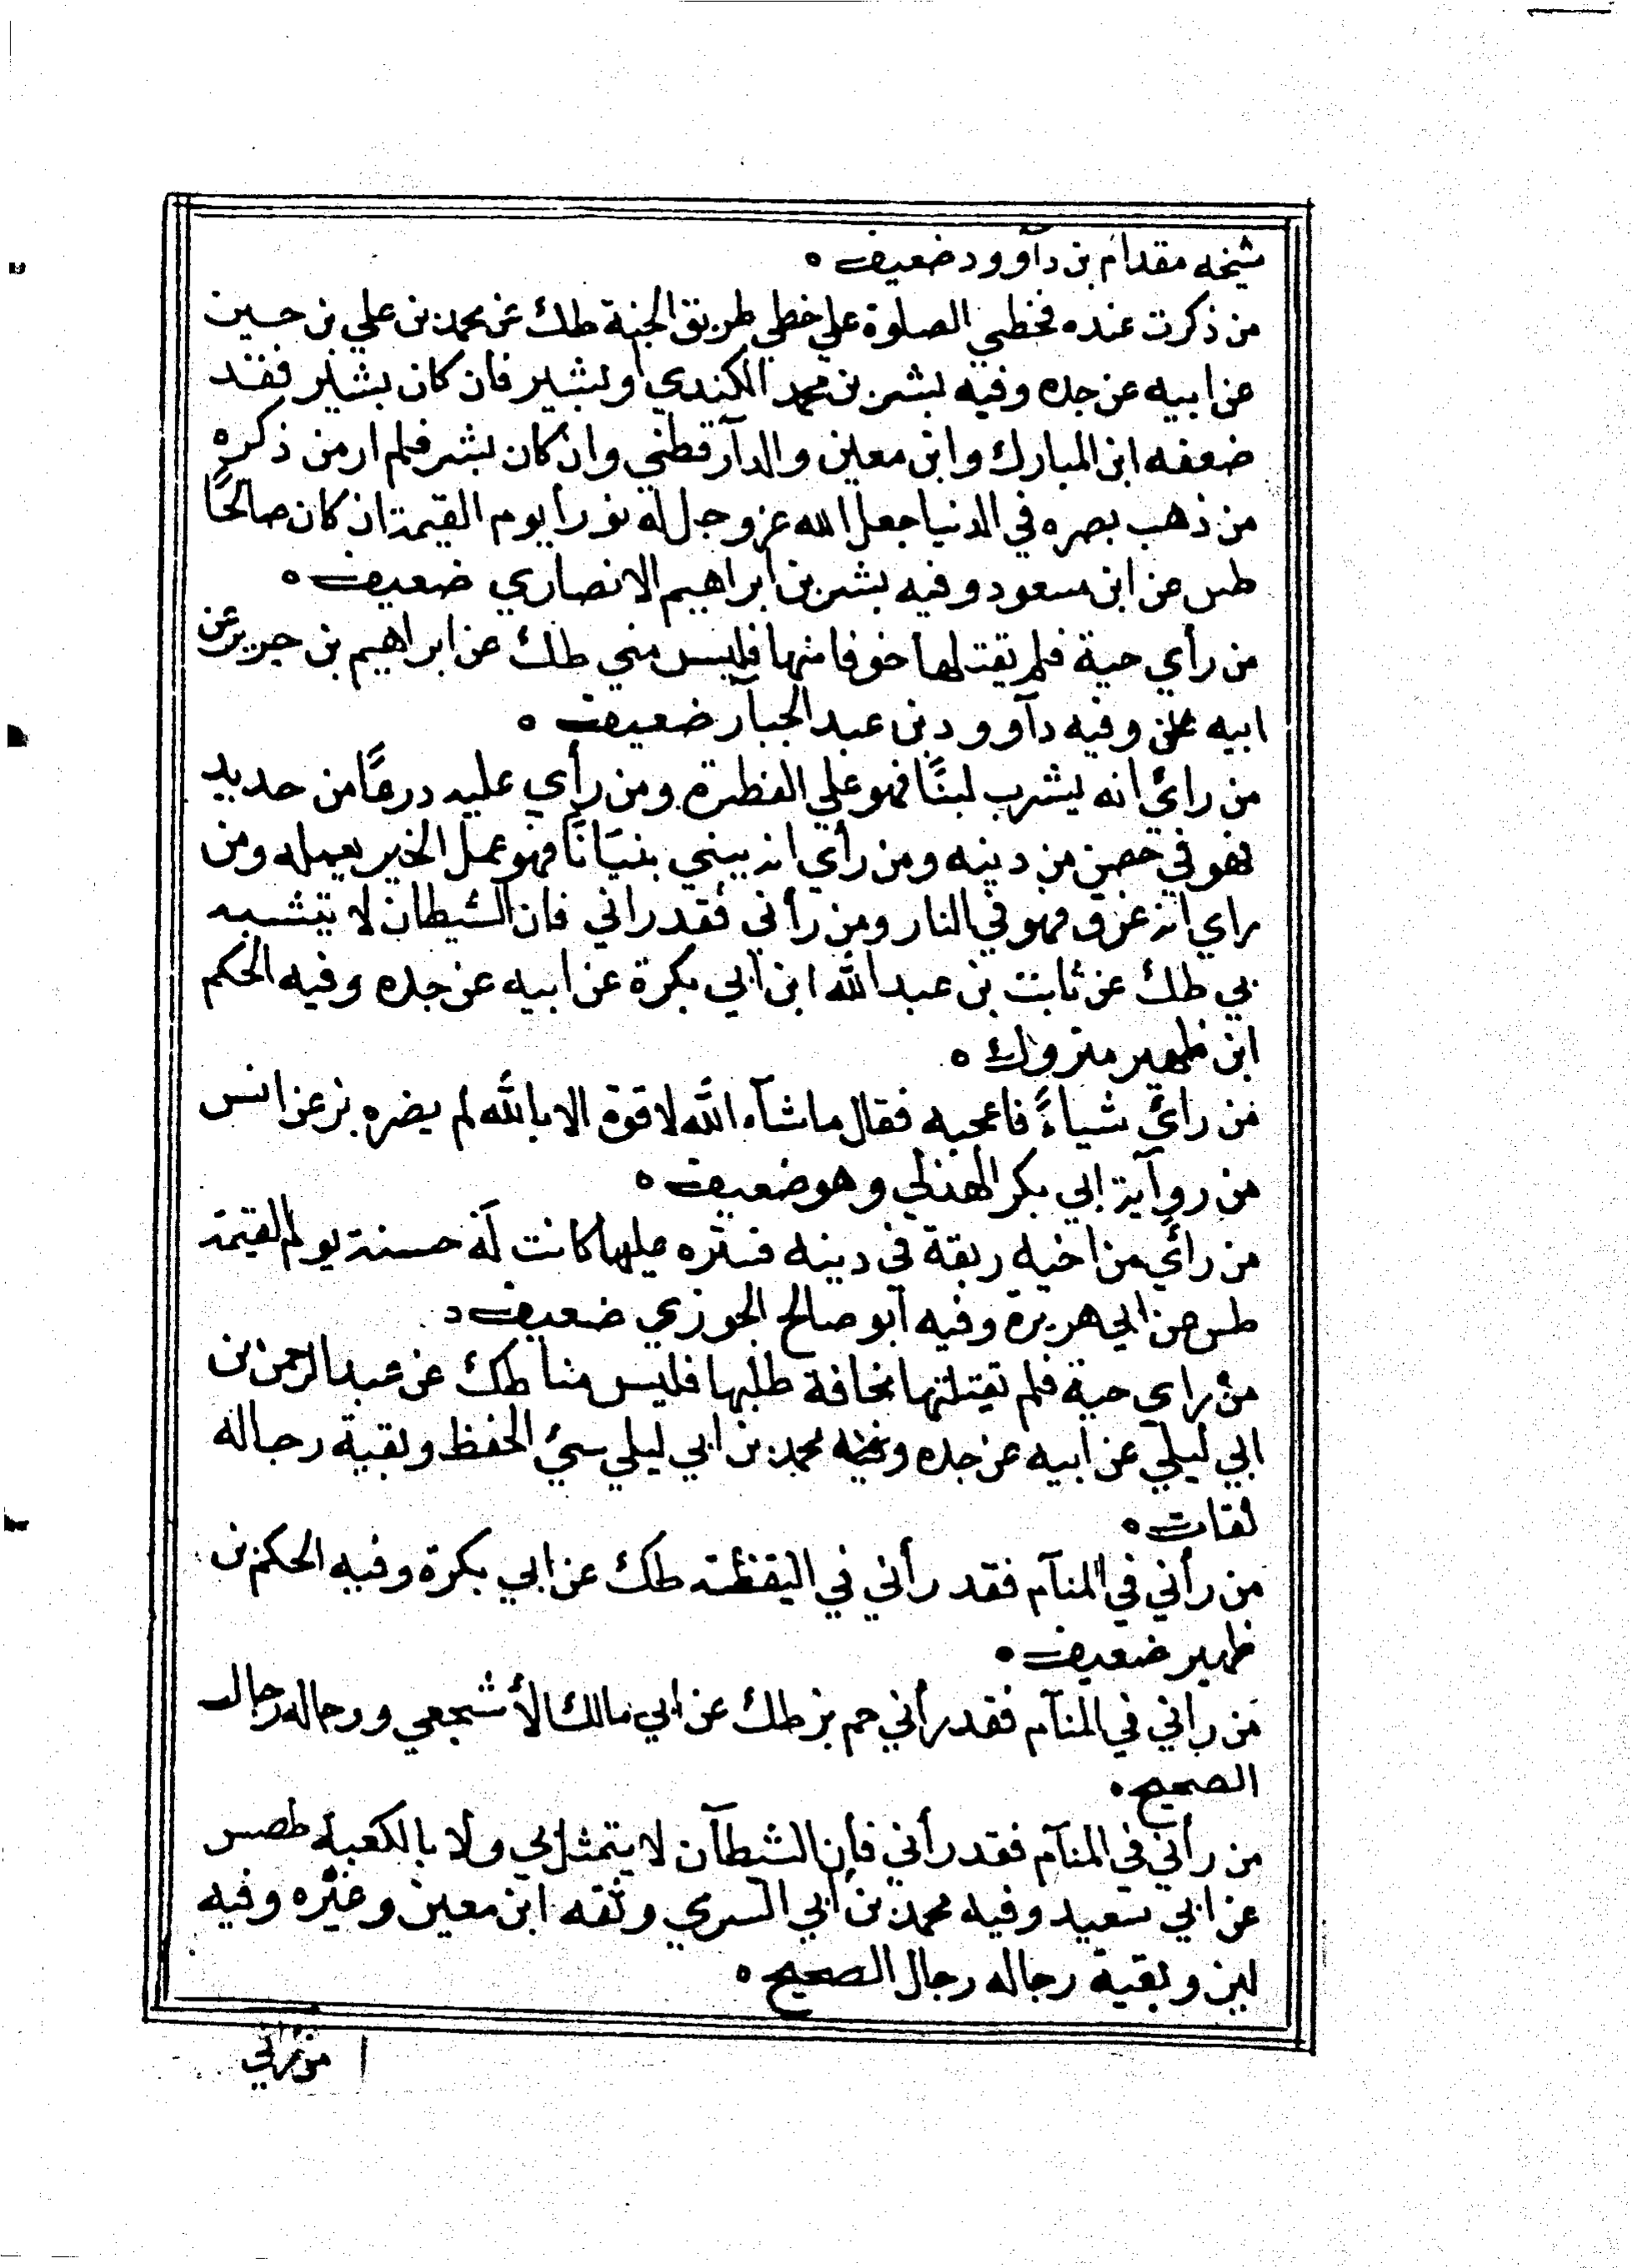 شيخه مقدام بن دآوود ضعيف ه
من ذكرت عنده فخطي الصلوة علي خطي طريق الجنة طك عن محمد بن علي بن حسين
عن ابيه عن جده وفيه بشر بن محمد الكندي او بشير فان كان بشير فقد
ضعفه ابن المبارك وابن معين والدآرقطني وان كان بشر فلم ار من ذكره
من ذهب بصره في الدنيا جعل الله عز وجل له نورا يوم القيمة ان كان صالحًا
طس عن ابن مسعود وفيه بشر بن ابراهيم الانصاري ضعيف ه
من رأي حية فلم يقتلها خوفا منها فليس مني طك عن ابراهيم بن جرير عن
ابيه وفيه دآوود بن عبد الجبار ضعيف ه
من رائ انه يشرب لبنًا فهو علي الفطرة ومن رأي عليه درعًا من حديد
فهو في حصن من دينه ومن رأي انه يبني بنيانًا فهو عمل الخير يعمله ومن
راي انه غرق فهو في النار ومن رأني فقد راني فان الشيطان لا يتشبه
بي طك عن ثابت بن عبد الله ابن ابي بكرة عن ابيه عن جده وفيه الحكم
ابن ظهير متروك ه
من رائ شياءً فاعجبه فقال ماشآء الله لا قوة الا بالله لم يضره بز عن انس
من روآية ابي بكر الهذلي وهو ضعيف ه
من رائ من اخيه ربقة في دينه فستره عليها كانت له حسنة يوم القيمة
طس عن ابي هريرة وفيه ابو صالح الجوزي ضعيف ه
من راي حية فلم يقتلها مخافة طلبها فليس منا طك عن عبد الرحمن بن
ابي ليلي عن ابيه عن جده وفيه محمد بن ابي ليلي سئ الحفظ وبقية رجاله
ثقات ه
من رأني في المنآم فقد رأني في اليقظة طك عن ابي بكرة وفيه الحكم بن
ظهير ضعيف ه
من راني في المنآم فقد رأني حم بز طك عن ابي مالك الأشجعي ورجاله رجال
الصحيح ه
من رأني في المنآم فقد رأني فان الشطآن لا يتمثل بي ولا بالكعبة طصس
عن ابي سعيد وفيه محمد بن ابي السري وثقه ابن معين وغيره وفيه
لين وبقية رجاله رجال الصحيح ه
من رأني